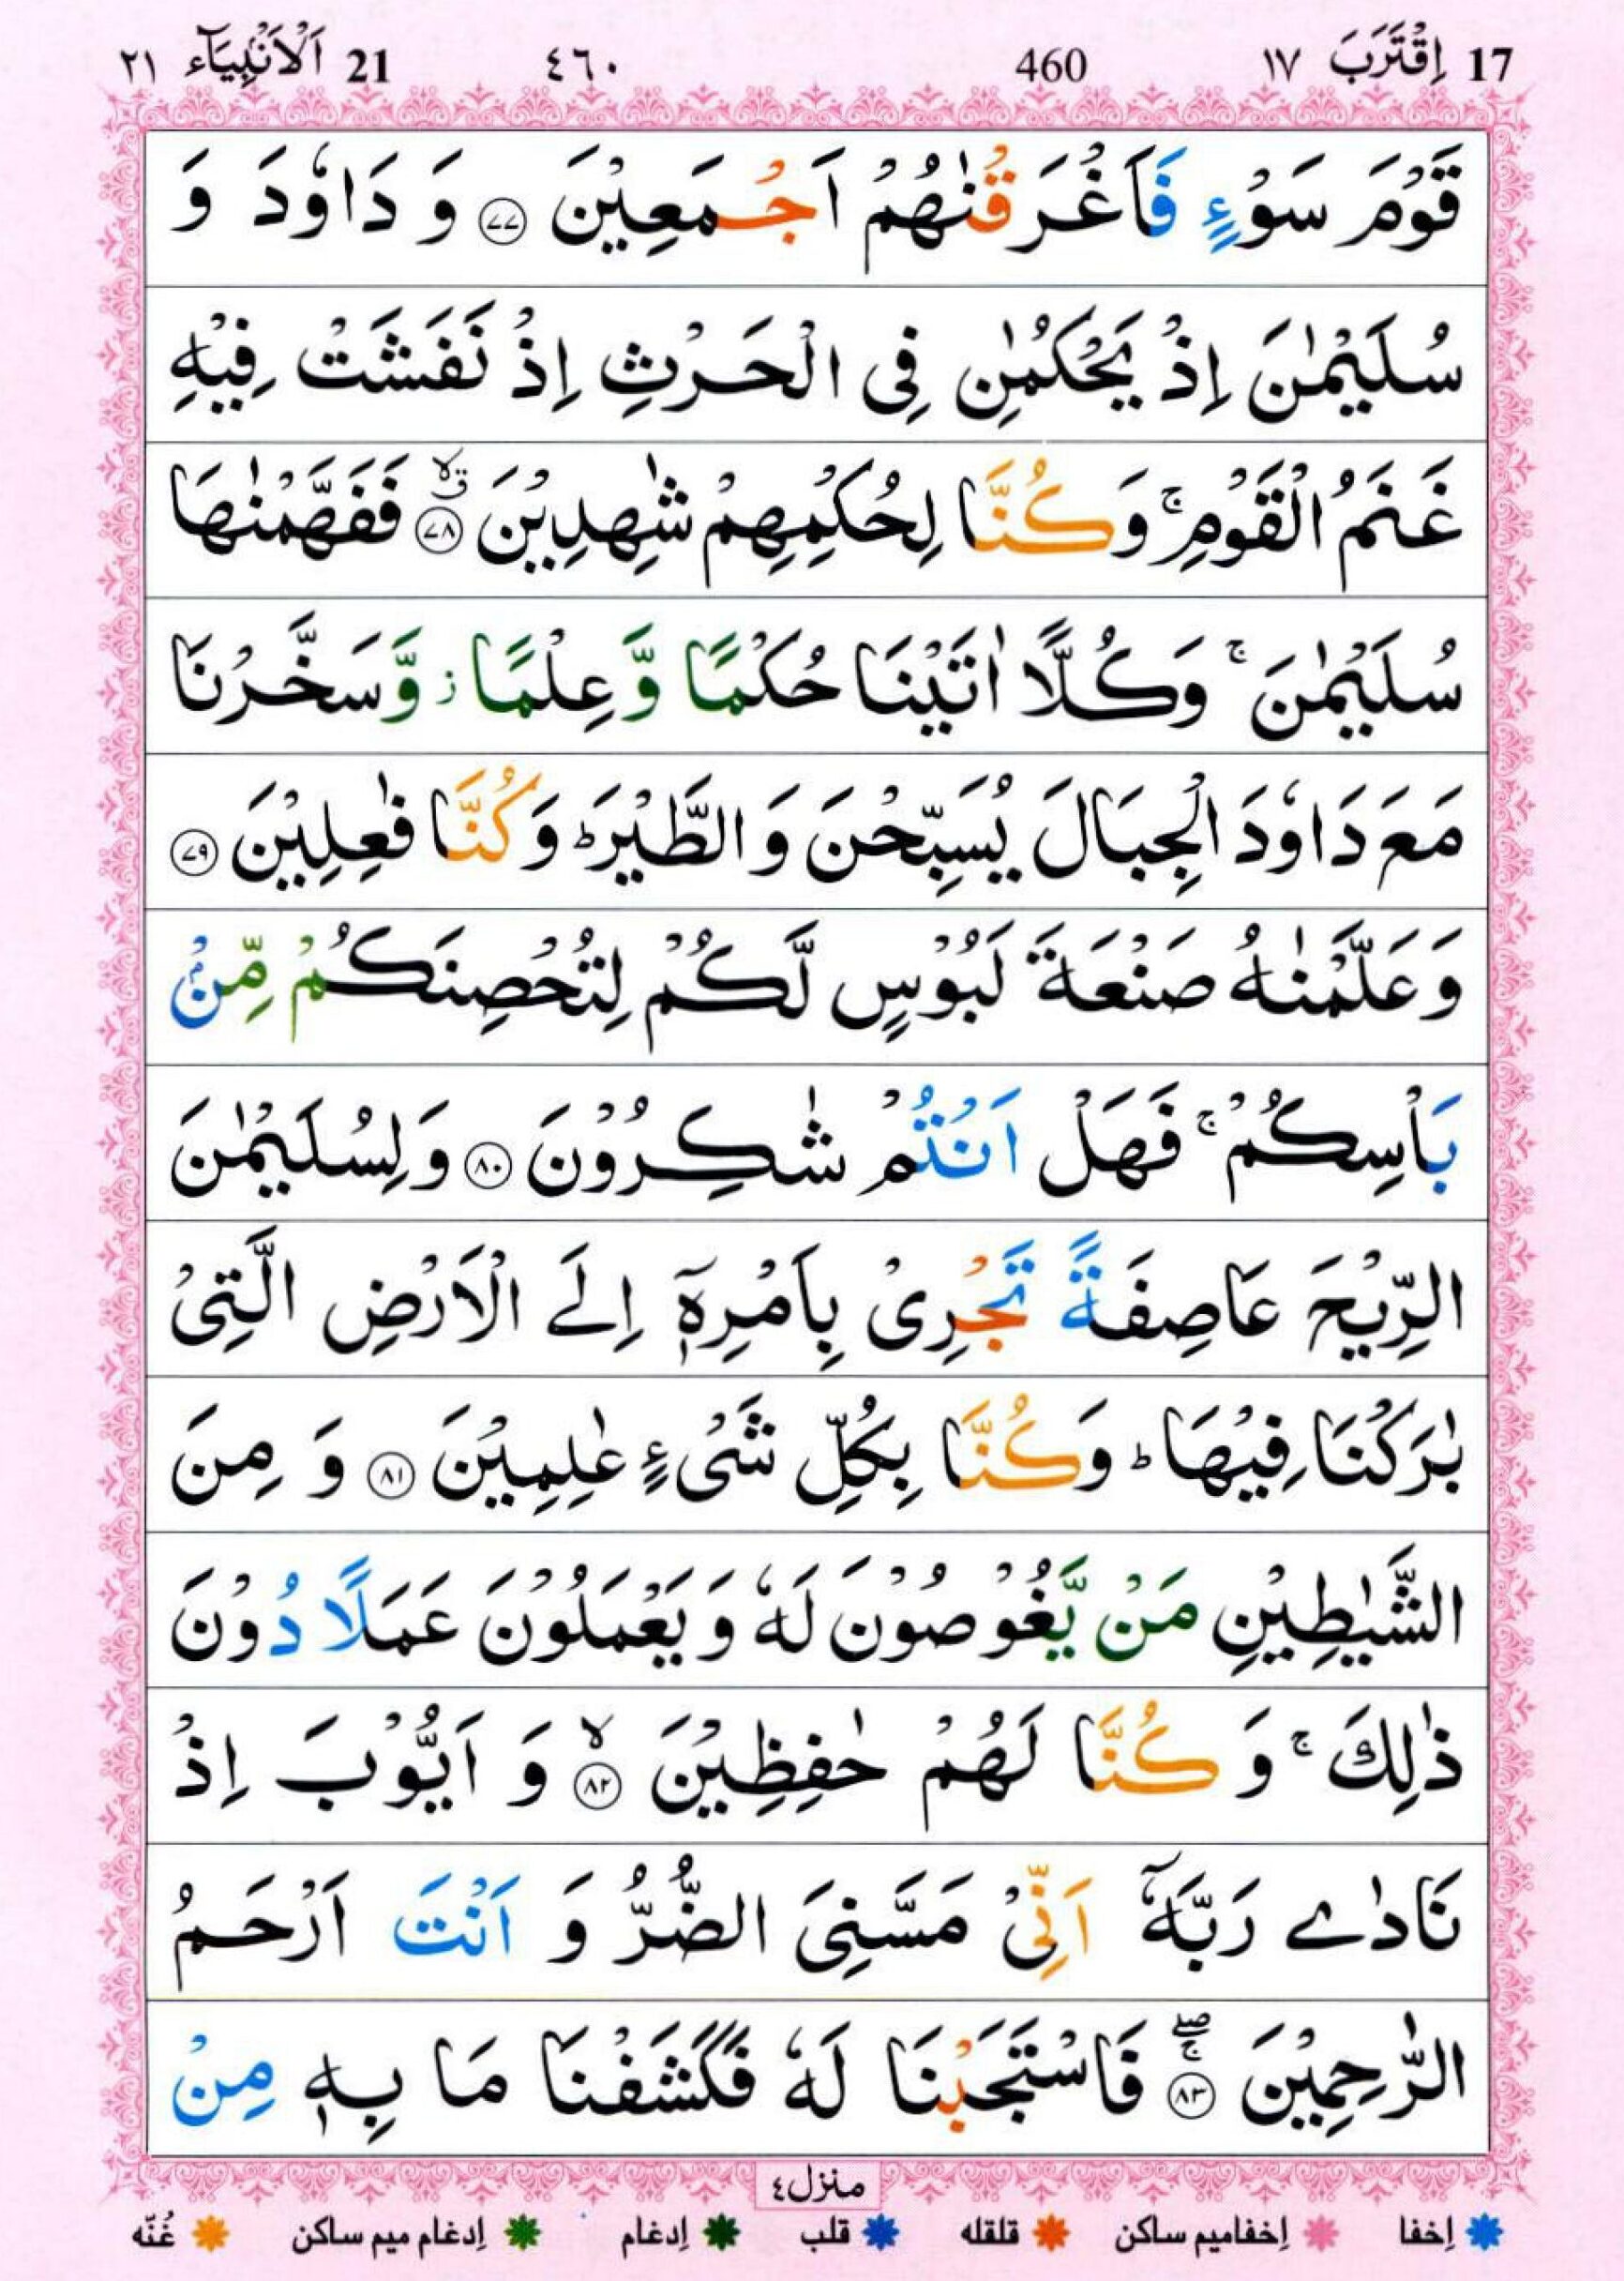 17 اِقْتَرَبَ ١٧ 460 ٤٦٠ 21 اَلْاَنْۢبِيَآء ٢١
قَوْمَ سَوْءٍ فَاَغْرَقْنٰهُمْ اَجْمَعِيْنَ ۝٧٧ وَ دَاوٗدَ وَ
سُلَيْمٰنَ اِذْ يَحْكُمٰنِ فِى الْحَرْثِ اِذْ نَفَشَتْ فِيْهِ
غَنَمُ الْقَوْمِ ۚ وَكُنَّا لِحُكْمِهِمْ شٰهِدِيْنَ ۝٧٨ ۙق فَفَهَّمْنٰهَا
سُلَيْمٰنَ ۚ وَكُلًّا اٰتَيْنَا حُكْمًا وَّعِلْمًا ز وَّسَخَّرْنَا
مَعَ دَاوٗدَ الْجِبَالَ يُسَبِّحْنَ وَالطَّيْرَ ؕ وَكُنَّا فٰعِلِيْنَ ۝٧٩
وَعَلَّمْنٰهُ صَنْعَةَ لَبُوْسٍ لَّكُمْ لِتُحْصِنَكُمْ مِّنْۢ
بَاْسِكُمْ ۚ فَهَلْ اَنْتُمْ شٰكِرُوْنَ ۝٨٠ وَلِسُلَيْمٰنَ
الرِّيْحَ عَاصِفَةً تَجْرِىْ بِاَمْرِهٖٓ اِلَى الْاَرْضِ الَّتِىْ
بٰرَكْنَا فِيْهَا ؕ وَكُنَّا بِكُلِّ شَىْءٍ عٰلِمِيْنَ ۝٨١ وَ مِنَ
الشَّيٰطِيْنِ مَنْ يَّغُوْصُوْنَ لَهٗ وَيَعْمَلُوْنَ عَمَلًا دُوْنَ
ذٰلِكَ ۚ وَ كُنَّا لَهُمْ حٰفِظِيْنَ ۝٨٢ ۙ وَ اَيُّوْبَ اِذْ
نَادٰى رَبَّهٗٓ اَنِّىْ مَسَّنِىَ الضُّرُّ وَ اَنْتَ اَرْحَمُ
الرّٰحِمِيْنَ ۝٨٣ ۚۖ فَاسْتَجَبْنَا لَهٗ فَكَشَفْنَا مَا بِهٖ مِنْ
منزل ٤
اِخفا اِخفامیم ساکن قلقله قلب اِدغام اِدغام میم ساکن غُنّه